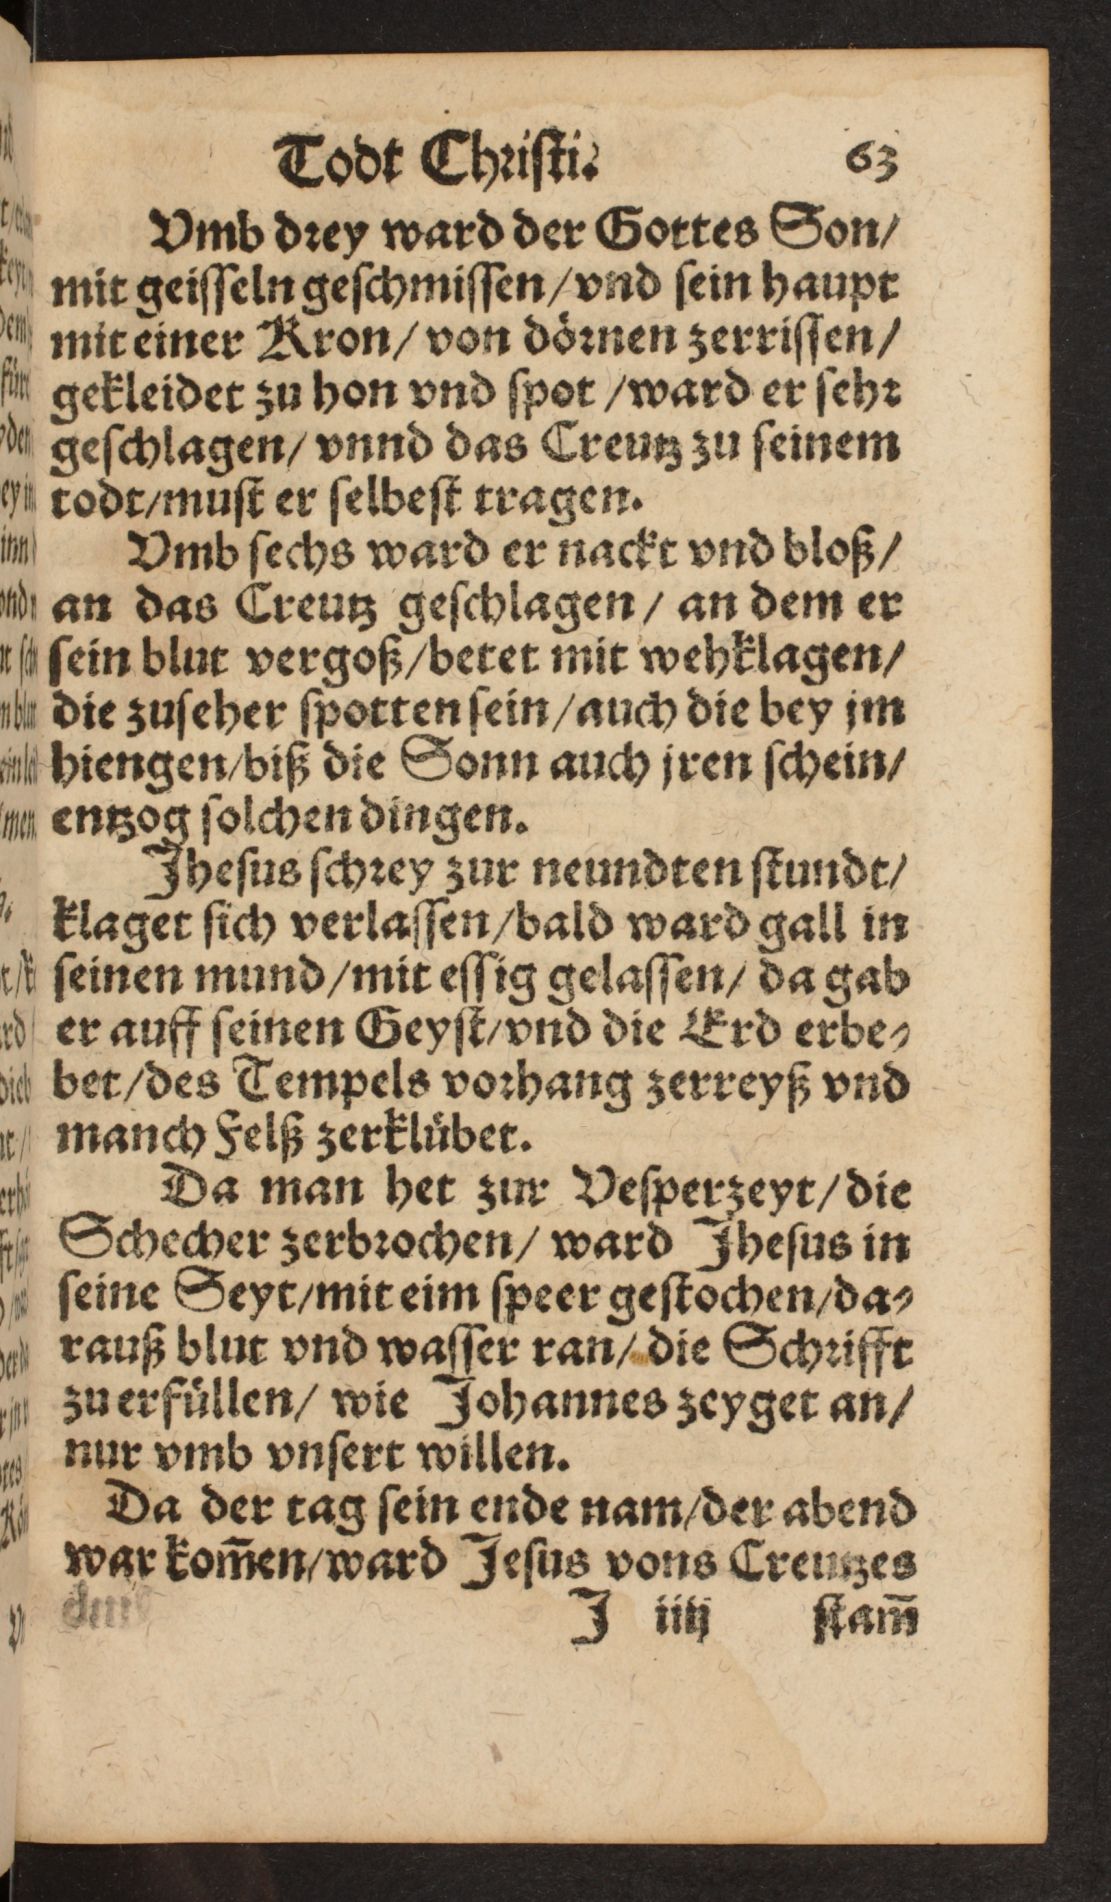 Todt Christi. 63
Vmb drey ward der Gottes Son/
mit geisseln geschmissen/vnd sein haupt
mit einer Kron/ von dörnen zerrissen/
gekleidet zu hon vnd spot /ward er sehr
geschlagen/ vnnd das Creutz zu seinem
todt/must er selbest tragen.
Vmb sechs ward er nackt vnd bloß/
an das Creutz geschlagen/ an dem er
sein blut vergoß/betet mit wehklagen/
die zuseher spotten sein/auch die bey jm
hiengen/biß die Sonn auch jren schein/
entzog solchen dingen.
Jhesus schrey zur neundten stundt/
klaget sich verlassen/bald ward gall in
seinen mund/mit essig gelassen/ da gab
er auff seinen Geyst/vnd die Erd erbe-
bet/des Tempels vorhang zerreyß vnd
manch Felß zerklübet.
Da man het zur Vesperzeyt/die
Schecher zerbrochen/ ward Jhesus in
seine Seyt/mit eim speer gestochen/da-
rauß blut vnd wasser ran/ die Schrifft
zu erfüllen/ wie Johannes zeyget an/
nur vmb vnsert willen.
Da der tag sein ende nam/der abend
war kom̄en/ward Jesus vons Creutzes
J iiij stam̄